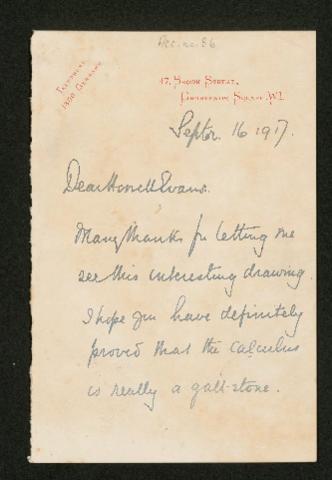 Acc. no. 86
Telephone
1850 Gerrard
47, Brook Street,
Grosvenor Square. W.1.
Septbr. 16 1917.
Dear Howell Evans.
Many thanks for letting me
see this interesting drawing
I hope you have definitely
proved that the calculus
is really a gall-stone.